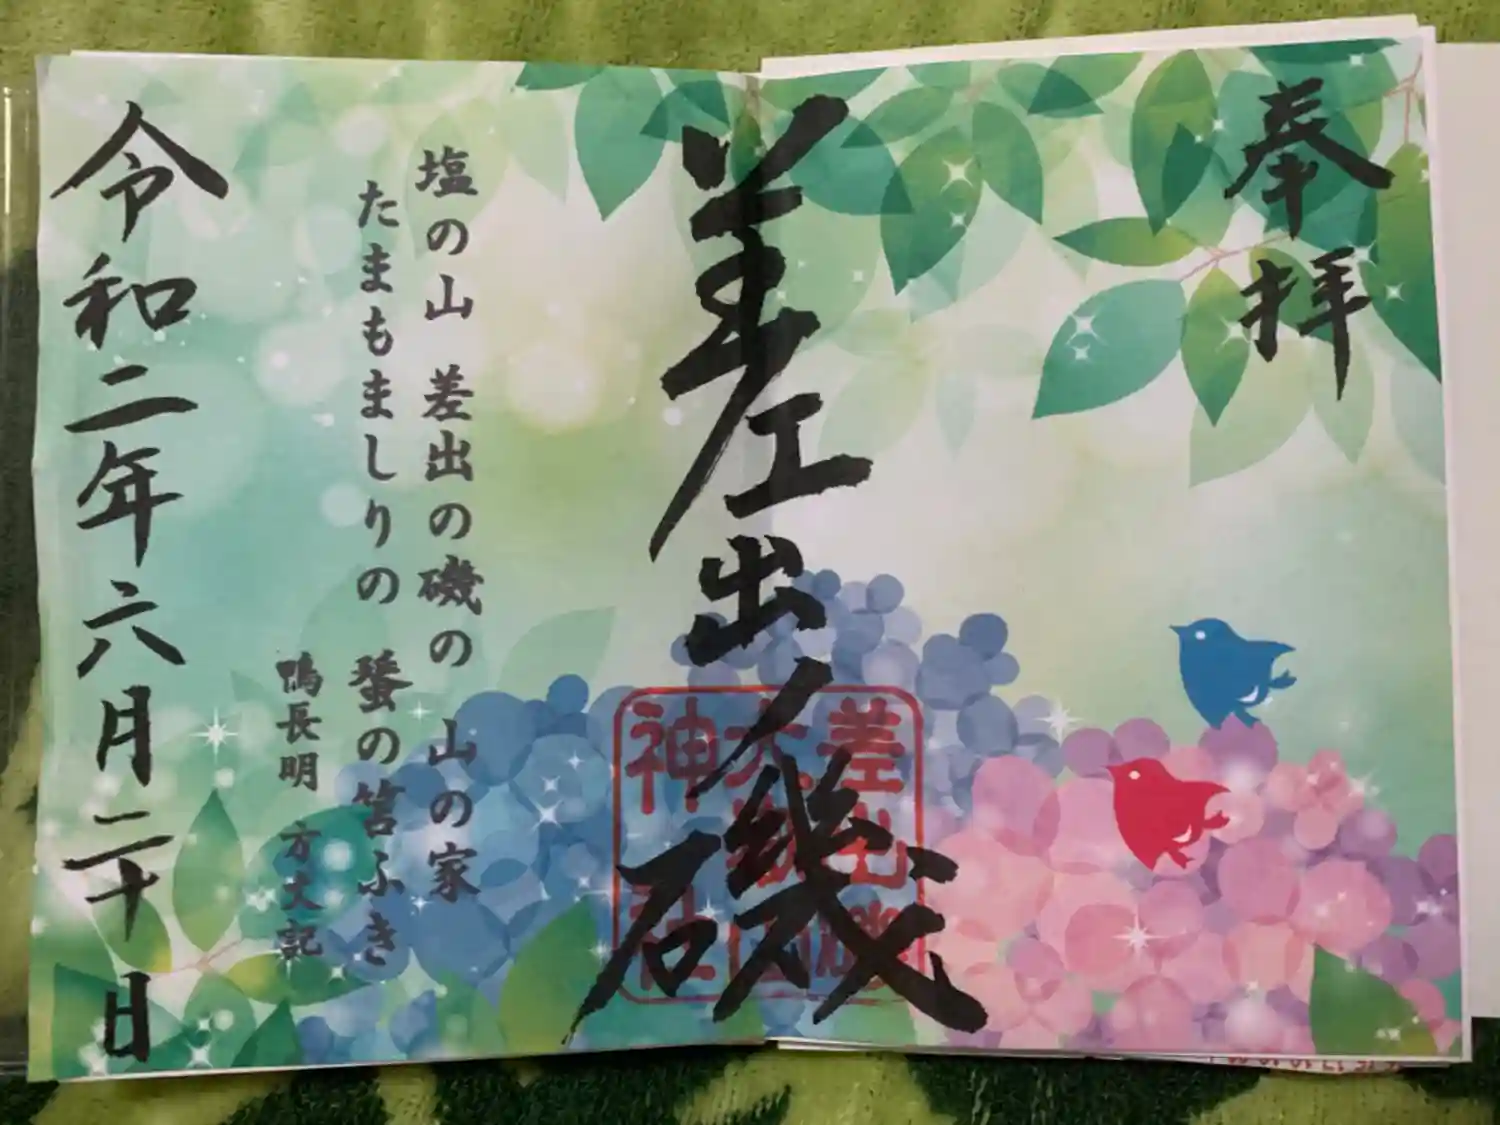 奉拝
差出ノ磯
差出磯
大嶽山
神社
塩の山 差出の磯の 山の家
たまもましりの 蜑の笘ふき
鴨長明 方丈記
令和二年六月二十日